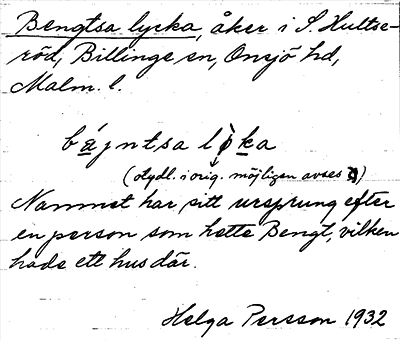 Bengtsa lycka, åker i S. Hultse-
röd, Billinge sn, Onsjö hd,
Malm. l.
báȷntsa lòka
(otydl. i orig. möjligen avses )
Namnet har sitt ursprung efter
en person som hette Bengt, vilken
hade ett hus där.
Helga Persson 1932